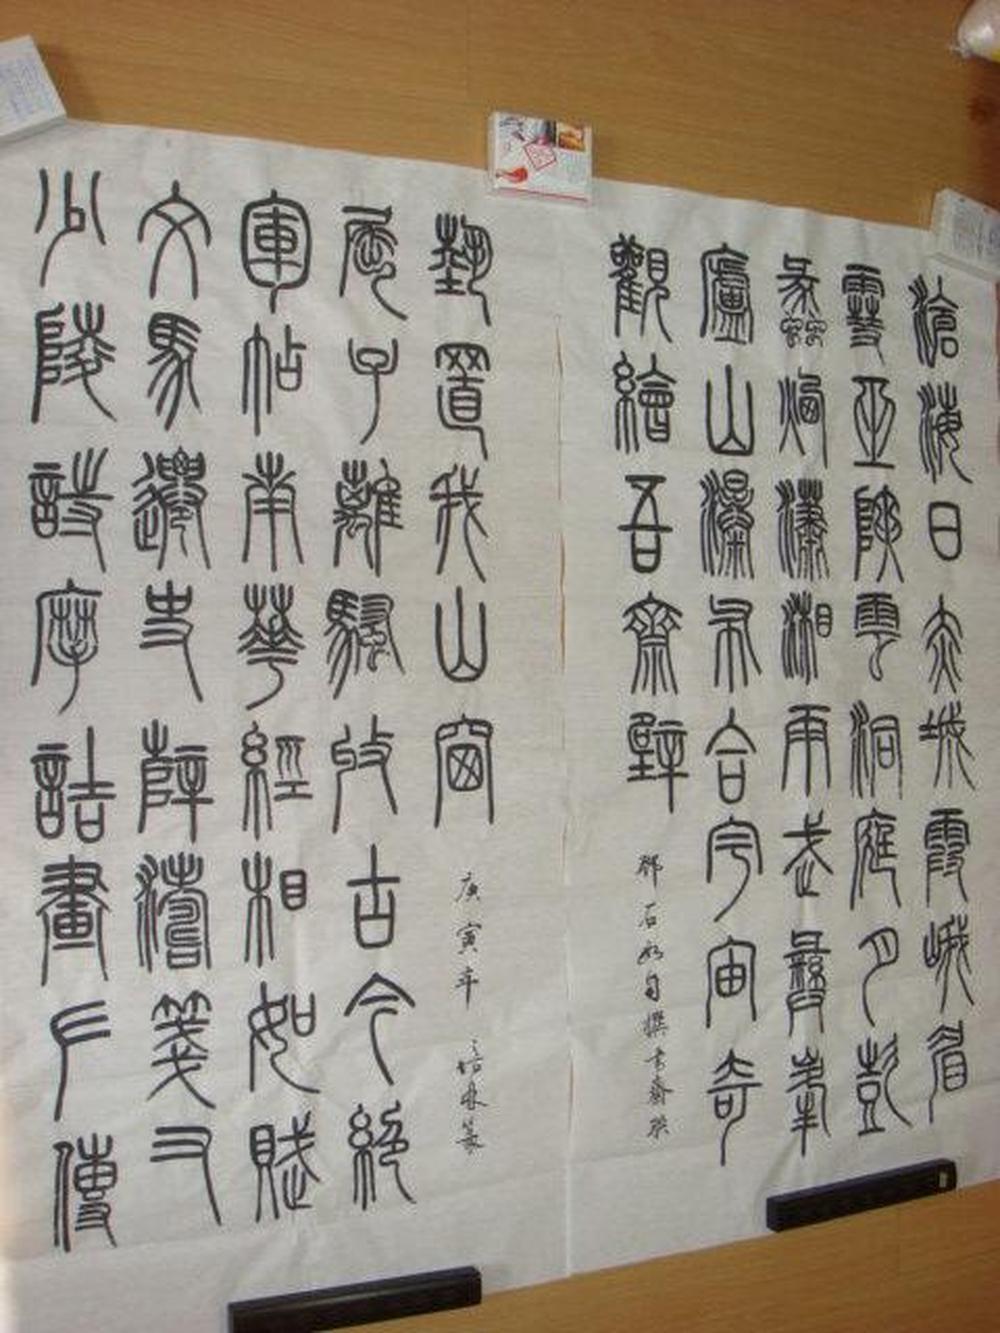 滄海日赤城霞峨眉
雪巫峽雲洞庭月彭
蠡煙瀟湘雨武彝峰
廬山瀑布合宇宙奇
觀繪吾齋壁
鄧石如自撰書齋聯
少陵詩摩詰畫左傳
文馬遷史薛濤箋右
軍帖南華經相如賦
屈子離騷收古今絕
藝置我山窗
庚寅年 培林篆